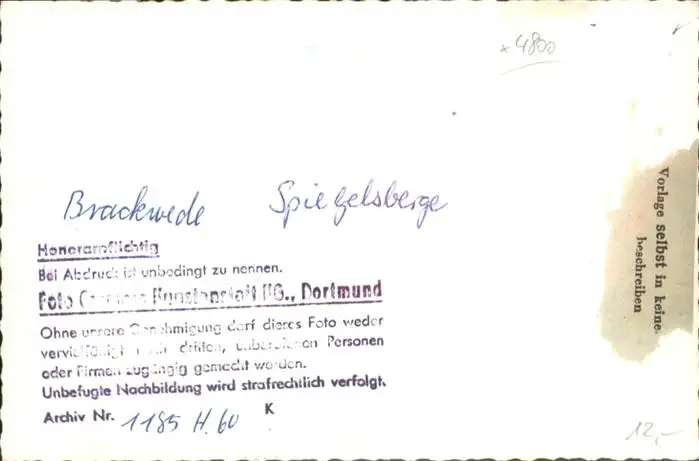 x 4800
Brackwede Spiegelsberge
Honorarpflichtig
Bei Abdruck ist unbedingt zu nennen.
Foto Kunstanstalt KG., Dortmund
Ohne unsere Genehmigung darf dieses Foto weder
vervielfältigt noch dritten, unberufenen Personen
oder Firmen zugängig gemacht werden.
Unbefugte Nachbildung wird strafrechtlich verfolgt.
Archiv Nr. 1185 H. 60 K
Vorlage selbst in keine
beschreiben
12,-